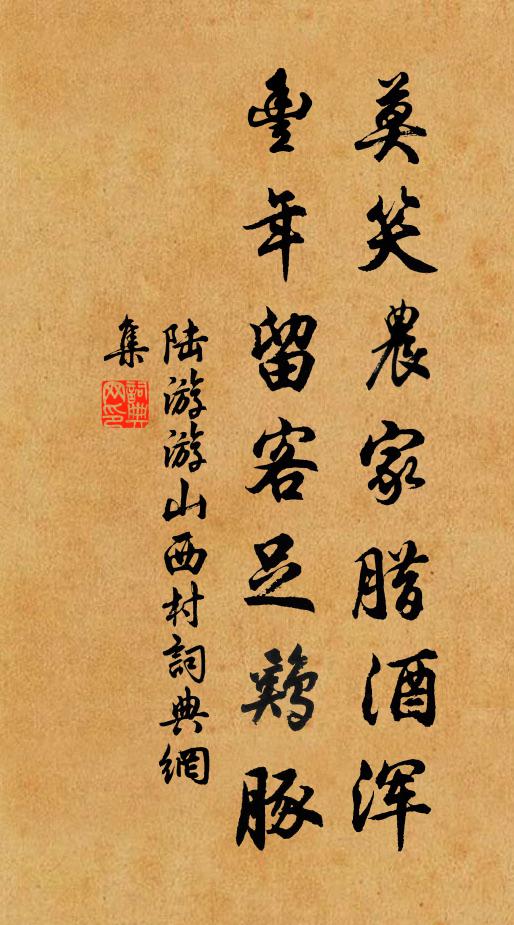 莫笑農家腊酒渾
豐年留客足鷄豚
陆游游山西村詞典網
集
詞典
网印